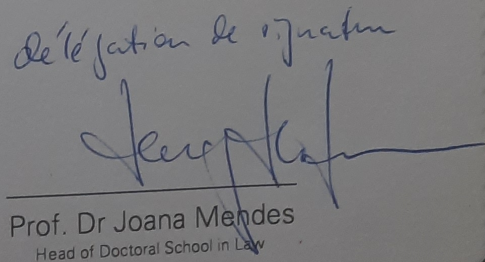 délégation de signature
Prof. Dr Joana Mendes
Head of Doctoral School in Law